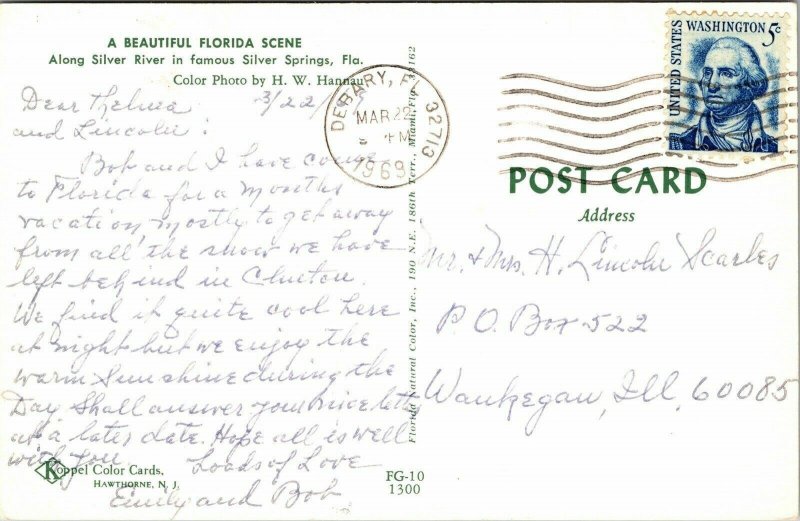 A BEAUTIFUL FLORIDA SCENE
Along Silver River in famous Silver Springs, Fla.
Color Photo by H. W. Hannau
Dear Thelma 3/22/
and Lincoln:
Bob and I have come
to Florida for a months
vacation, mostly to get away
from all the snow we have
left behind in Clinton.
We find it quite cool here
at night but we enjoy the
warm Sunshine during the
Day. Shall answer your nice
at a later date. Hope all is well
with you.
Loads of Love
Emily and Bob
Koppel Color Cards,
HAWTHORNE, N. J.
FG-10
1300
Florida Natural Color, Inc., 190 N.E. 186th Terr., Miami, Fla. 33162
DEBARY, FL 32713
MAR 22
PM
1969
UNITED STATES
WASHINGTON 5c
POST CARD
Address
Mr. & Mrs. H. Lincoln Scarles
P.O. Box 522
Waukegan, Ill, 60085